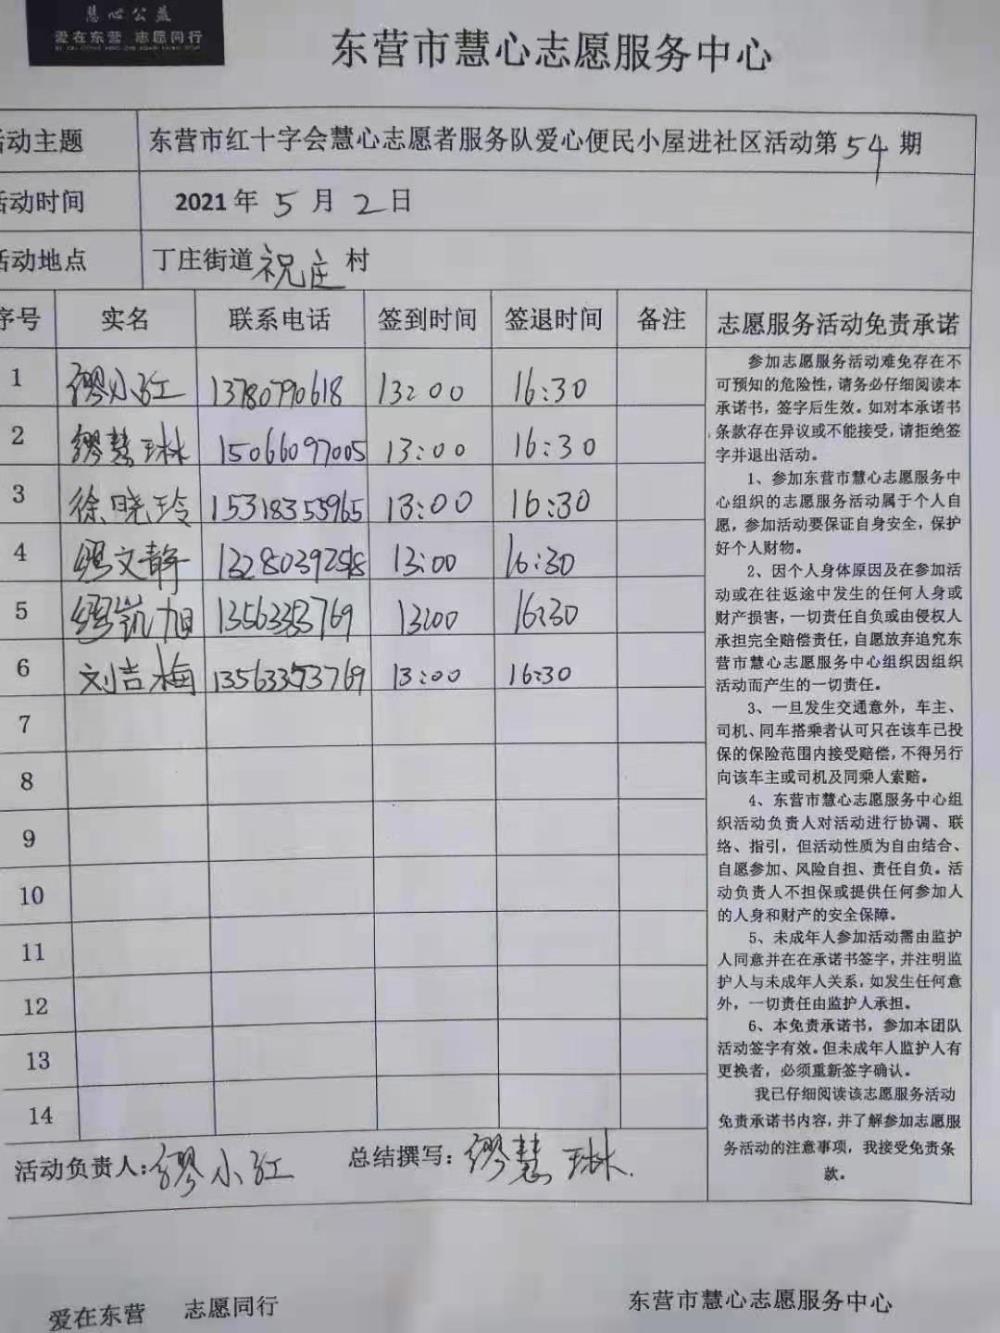 慧心公益
爱在东营 志愿同行
东营市慧心志愿服务中心
活动主题 东营市红十字会慧心志愿者服务队爱心便民小屋进社区活动第54期
活动时间 2021年5月2日
活动地点 丁庄街道祝庄村
序号 实名 联系电话 签到时间 签退时间 备注 志愿服务活动免责承诺
1 缪小红 13780790618 13:00 16:30
2 缪慧琳 15066097005 13:00 16:30
3 徐晓玲 15318355965 13:00 16:30
4 缪文静 13:00 16:30
5 缪凯旭 13:00 16:30
6 刘吉梅 13563353769 13:00 16:30
7
8
9
10
11
12
13
14
参加志愿服务活动难免存在不
可预知的危险性，请务必仔细阅读本
承诺书，签字后生效。如对本承诺书
条款存在异议或不能接受，请拒绝签
字并退出活动。
1、参加东营市慧心志愿服务中
心组织的志愿服务活动属于个人自
愿，参加活动要保证自身安全，保护
好个人财物。
2、因个人身体原因及在参加活
动或在往返途中发生的任何人身或
财产损害，一切责任自负或由侵权人
承担完全赔偿责任，自愿放弃追究东
营市慧心志愿服务中心组织因组织
活动而产生的一切责任。
3、一旦发生交通意外，车主、
司机、同车搭乘者认可只在该车已投
保的保险范围内接受赔偿，不得另行
向该车主或司机及同乘人索赔。
4、东营市慧心志愿服务中心组
织活动负责人对活动进行协调、联
络、指引，但活动性质为自由结合、
自愿参加、风险自担、责任自负。活
动负责人不担保或提供任何参加人
的人身和财产的安全保障。
5、未成年人参加活动需由监护
人同意并在在承诺书签字，并注明监
护人与未成年人关系，如发生任何意
外，一切责任由监护人承担。
6、本免责承诺书，参加本团队
活动签字有效。但未成年人监护人有
更换者，必须重新签字确认。
我已仔细阅读该志愿服务活动
免责承诺书内容，并了解参加志愿服
务活动的注意事项，我接受免责条
款。
活动负责人：缪小红 总结撰写：缪慧琳.
爱在东营 志愿同行 东营市慧心志愿服务中心